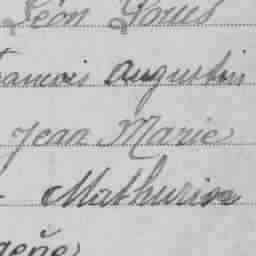 Léon Louis
François Augustin
Jean Marie
Mathurin